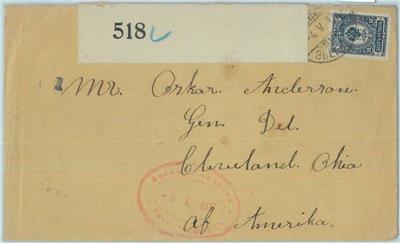 518
Mr. Oskar Anderson.
Gen. Del.
Cleveland. Ohia
af Amerika.